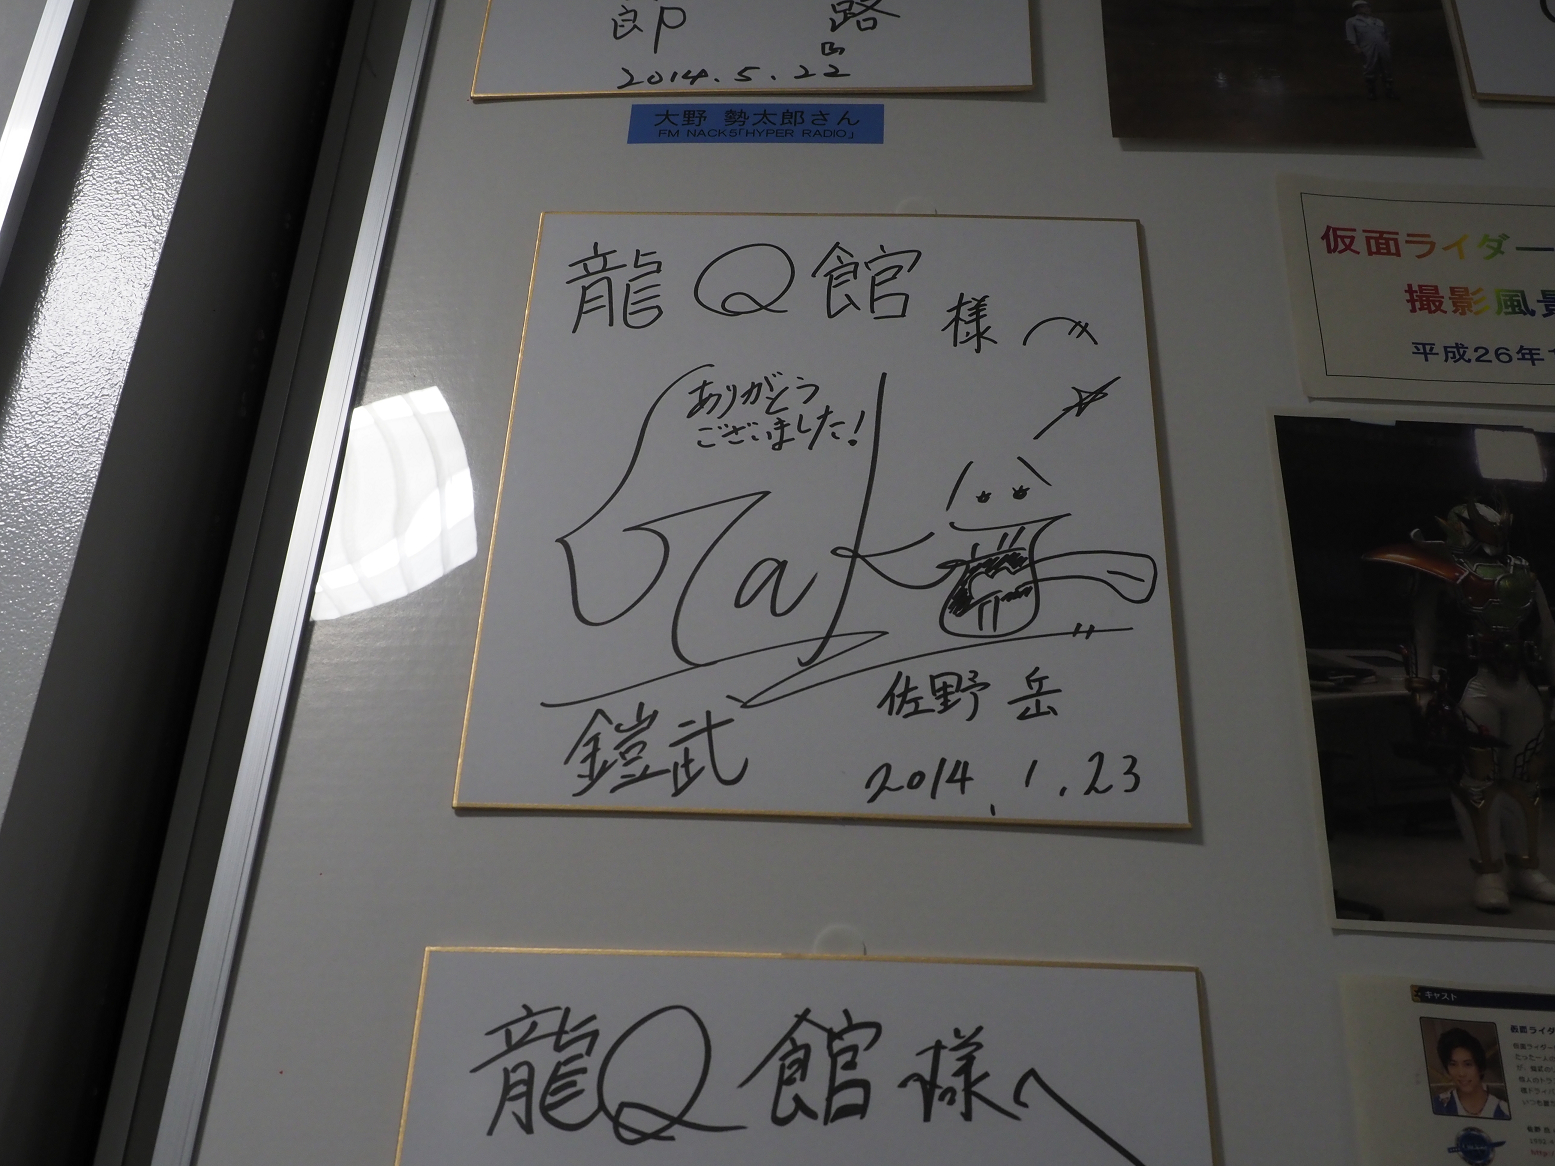 郎 路
2014.5.22
大野 勢太郎さん
FM NACK5「HYPER RADIO」
龍Q館
様へ
ありがとう
ございました!
Gaku
佐野 岳
鎧武
2014.1.23
仮面ライダー
撮影風景
平成26年1
龍Q館様へ
キャスト
仮面ライダ